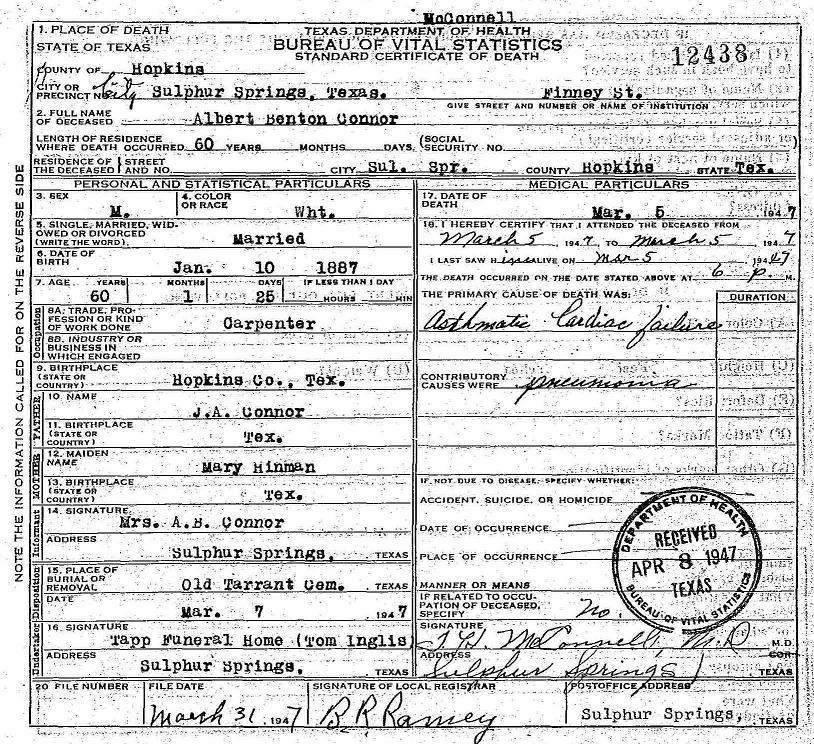 McConnell
1. PLACE OF DEATH
STATE OF TEXAS
TEXAS DEPARTMENT OF HEALTH
BUREAU OF VITAL STATISTICS
STANDARD CERTIFICATE OF DEATH
12438
COUNTY OF Hopkins
CITY OR PRECINCT NO. City Sulphur Springs, Texas. Finney St.
GIVE STREET AND NUMBER OR NAME OF INSTITUTION
2. FULL NAME OF DECEASED Albert Benton Connor
LENGTH OF RESIDENCE WHERE DEATH OCCURRED 60 YEARS MONTHS DAYS (SOCIAL SECURITY NO. )
RESIDENCE OF THE DECEASED STREET AND NO. CITY Sul. Spr. COUNTY Hopkins STATE Tex.
NOTE THE INFORMATION CALLED FOR ON THE REVERSE SIDE
PERSONAL AND STATISTICAL PARTICULARS
3. SEX M. 4. COLOR OR RACE Wht.
5. SINGLE, MARRIED, WIDOWED OR DIVORCED (WRITE THE WORD) Married
6. DATE OF BIRTH Jan. 10 1887
7. AGE YEARS MONTHS DAYS IF LESS THAN 1 DAY
60 1 25 HOURS MIN
Occupation
8A. TRADE, PROFESSION OR KIND OF WORK DONE Carpenter
8B. INDUSTRY OR BUSINESS IN WHICH ENGAGED
9. BIRTHPLACE (STATE OR COUNTRY) Hopkins Co., Tex.
FATHER
10. NAME J.A. Connor
11. BIRTHPLACE (STATE OR COUNTRY) Tex.
MOTHER
12. MAIDEN NAME Mary Hinman
13. BIRTHPLACE (STATE OR COUNTRY) Tex.
Informant
14. SIGNATURE Mrs. A.B. Connor
ADDRESS Sulphur Springs, TEXAS
Disposition
15. PLACE OF BURIAL OR REMOVAL Old Tarrant Cem. TEXAS
DATE Mar. 7 1947
Undertaker
16. SIGNATURE Tapp Funeral Home (Tom Inglis)
ADDRESS Sulphur Springs. TEXAS
MEDICAL PARTICULARS
17. DATE OF DEATH Mar. 5 1947
18. I HEREBY CERTIFY THAT I ATTENDED THE DECEASED FROM
March 5 1947, TO March 5 1947
I LAST SAW Him ALIVE ON Mar 5 1947
THE DEATH OCCURRED ON THE DATE STATED ABOVE AT 6 P. M.
THE PRIMARY CAUSE OF DEATH WAS: DURATION
Asthmatic Cardiac failure
CONTRIBUTORY CAUSES WERE pneumonia
IF NOT DUE TO DISEASE, SPECIFY WHETHER:
ACCIDENT, SUICIDE, OR HOMICIDE
DATE OF OCCURRENCE
PLACE OF OCCURRENCE
MANNER OR MEANS
IF RELATED TO OCCUPATION OF DECEASED, SPECIFY No.
DEPARTMENT OF HEALTH
RECEIVED
APR 8 1947
TEXAS
BUREAU OF VITAL STATISTICS
SIGNATURE McConnell, M.D. M.D.
ADDRESS Sulphur Springs TEXAS
20 FILE NUMBER FILE DATE SIGNATURE OF LOCAL REGISTRAR POSTOFFICE ADDRESS
March 31, 1947 B.R. Ramey Sulphur Springs, TEXAS